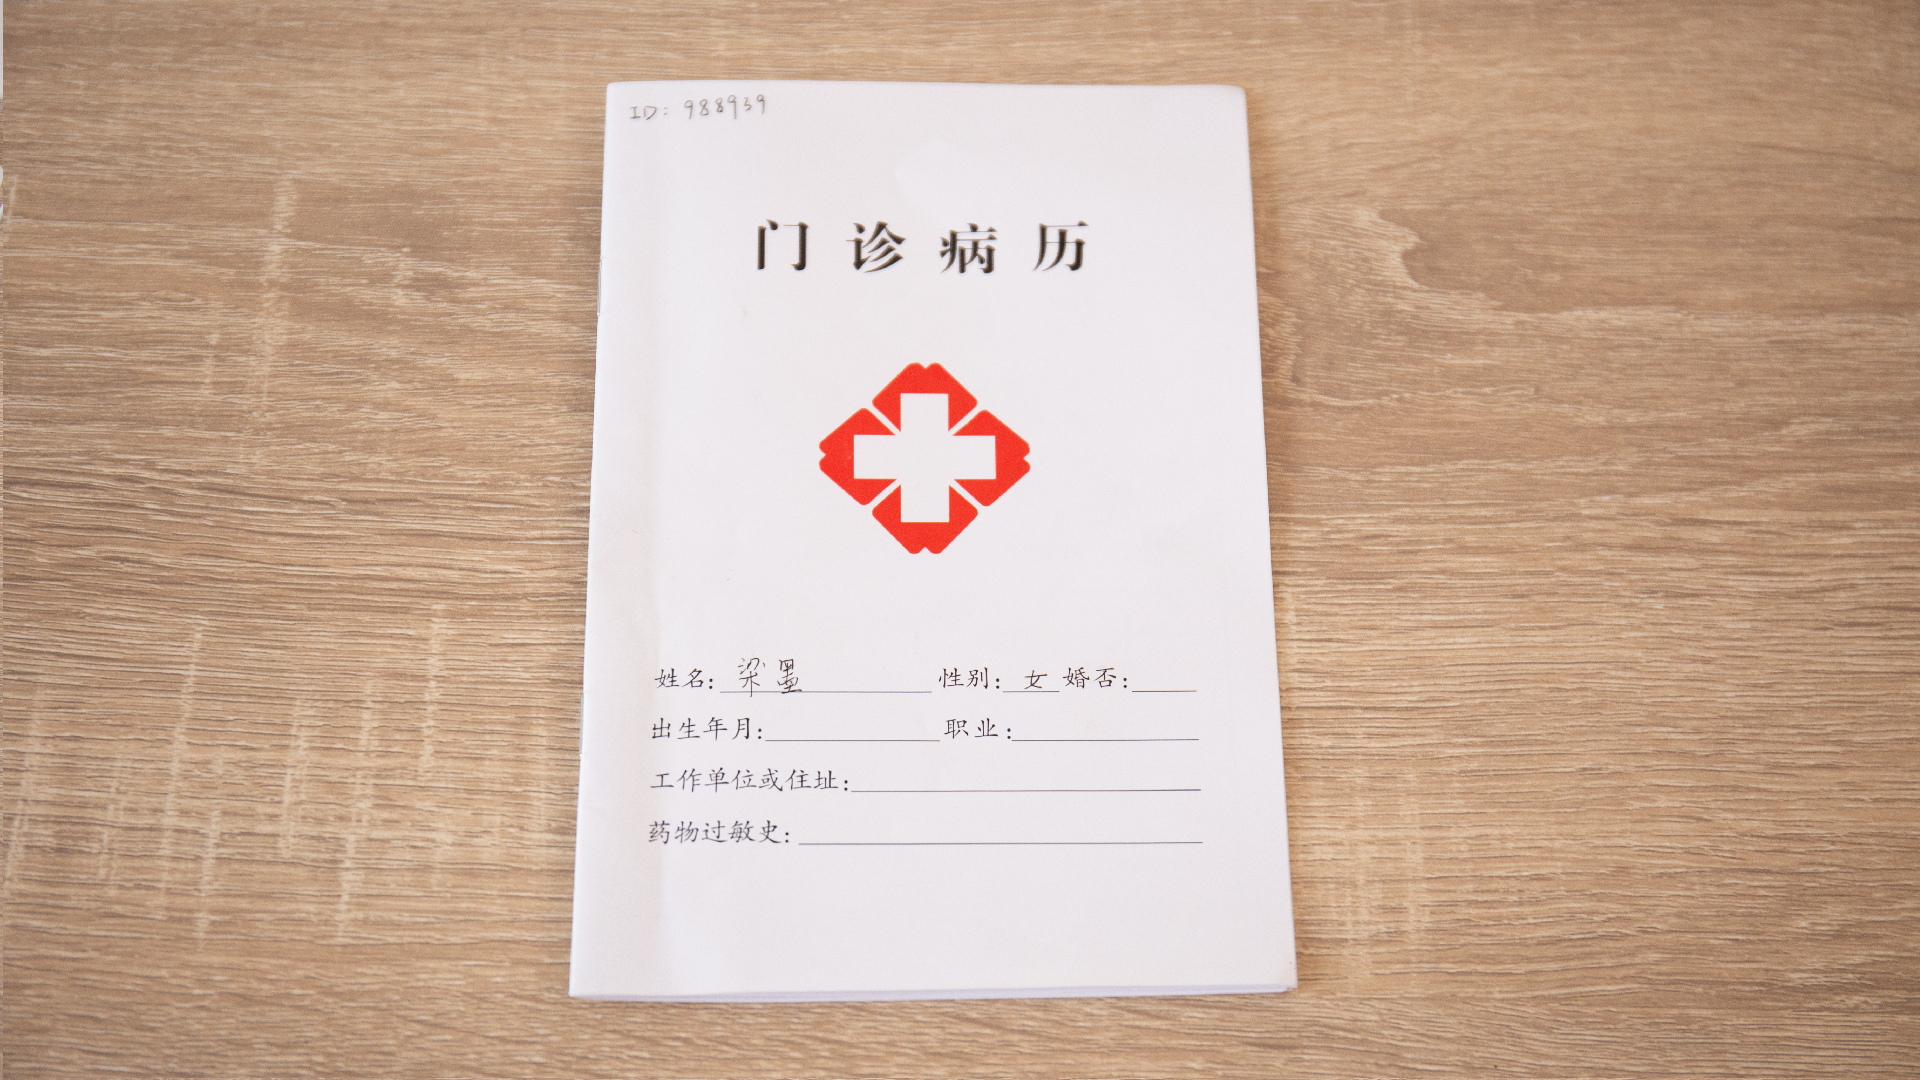 ID: 988939
门诊病历
姓名: 梁墨 性别: 女 婚否:
出生年月: 职业:
工作单位或住址:
药物过敏史: